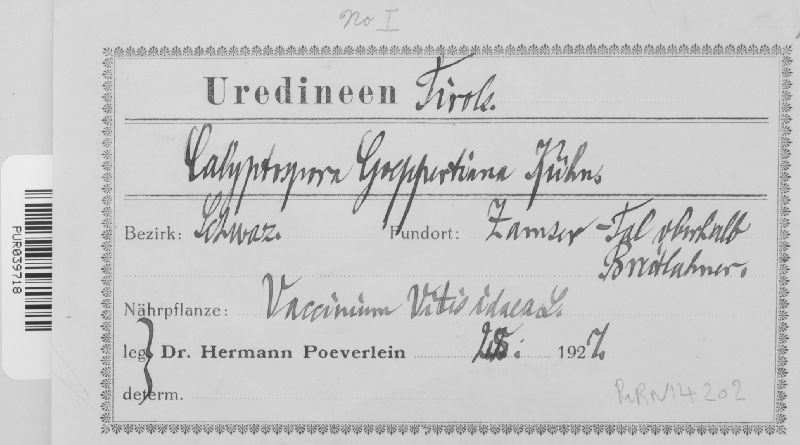 No I
Uredineen Tirols.
Calyptospora Goeppertiana Kühn.
Bezirk: Schwaz. Fundort: Zamser-Tal oberhalb
Breitlahner.
Nährpflanze: Vaccinium Vitis idaea L.
leg. Dr. Hermann Poeverlein 8. 1927.
determ.
PUR N14202
PUR039718